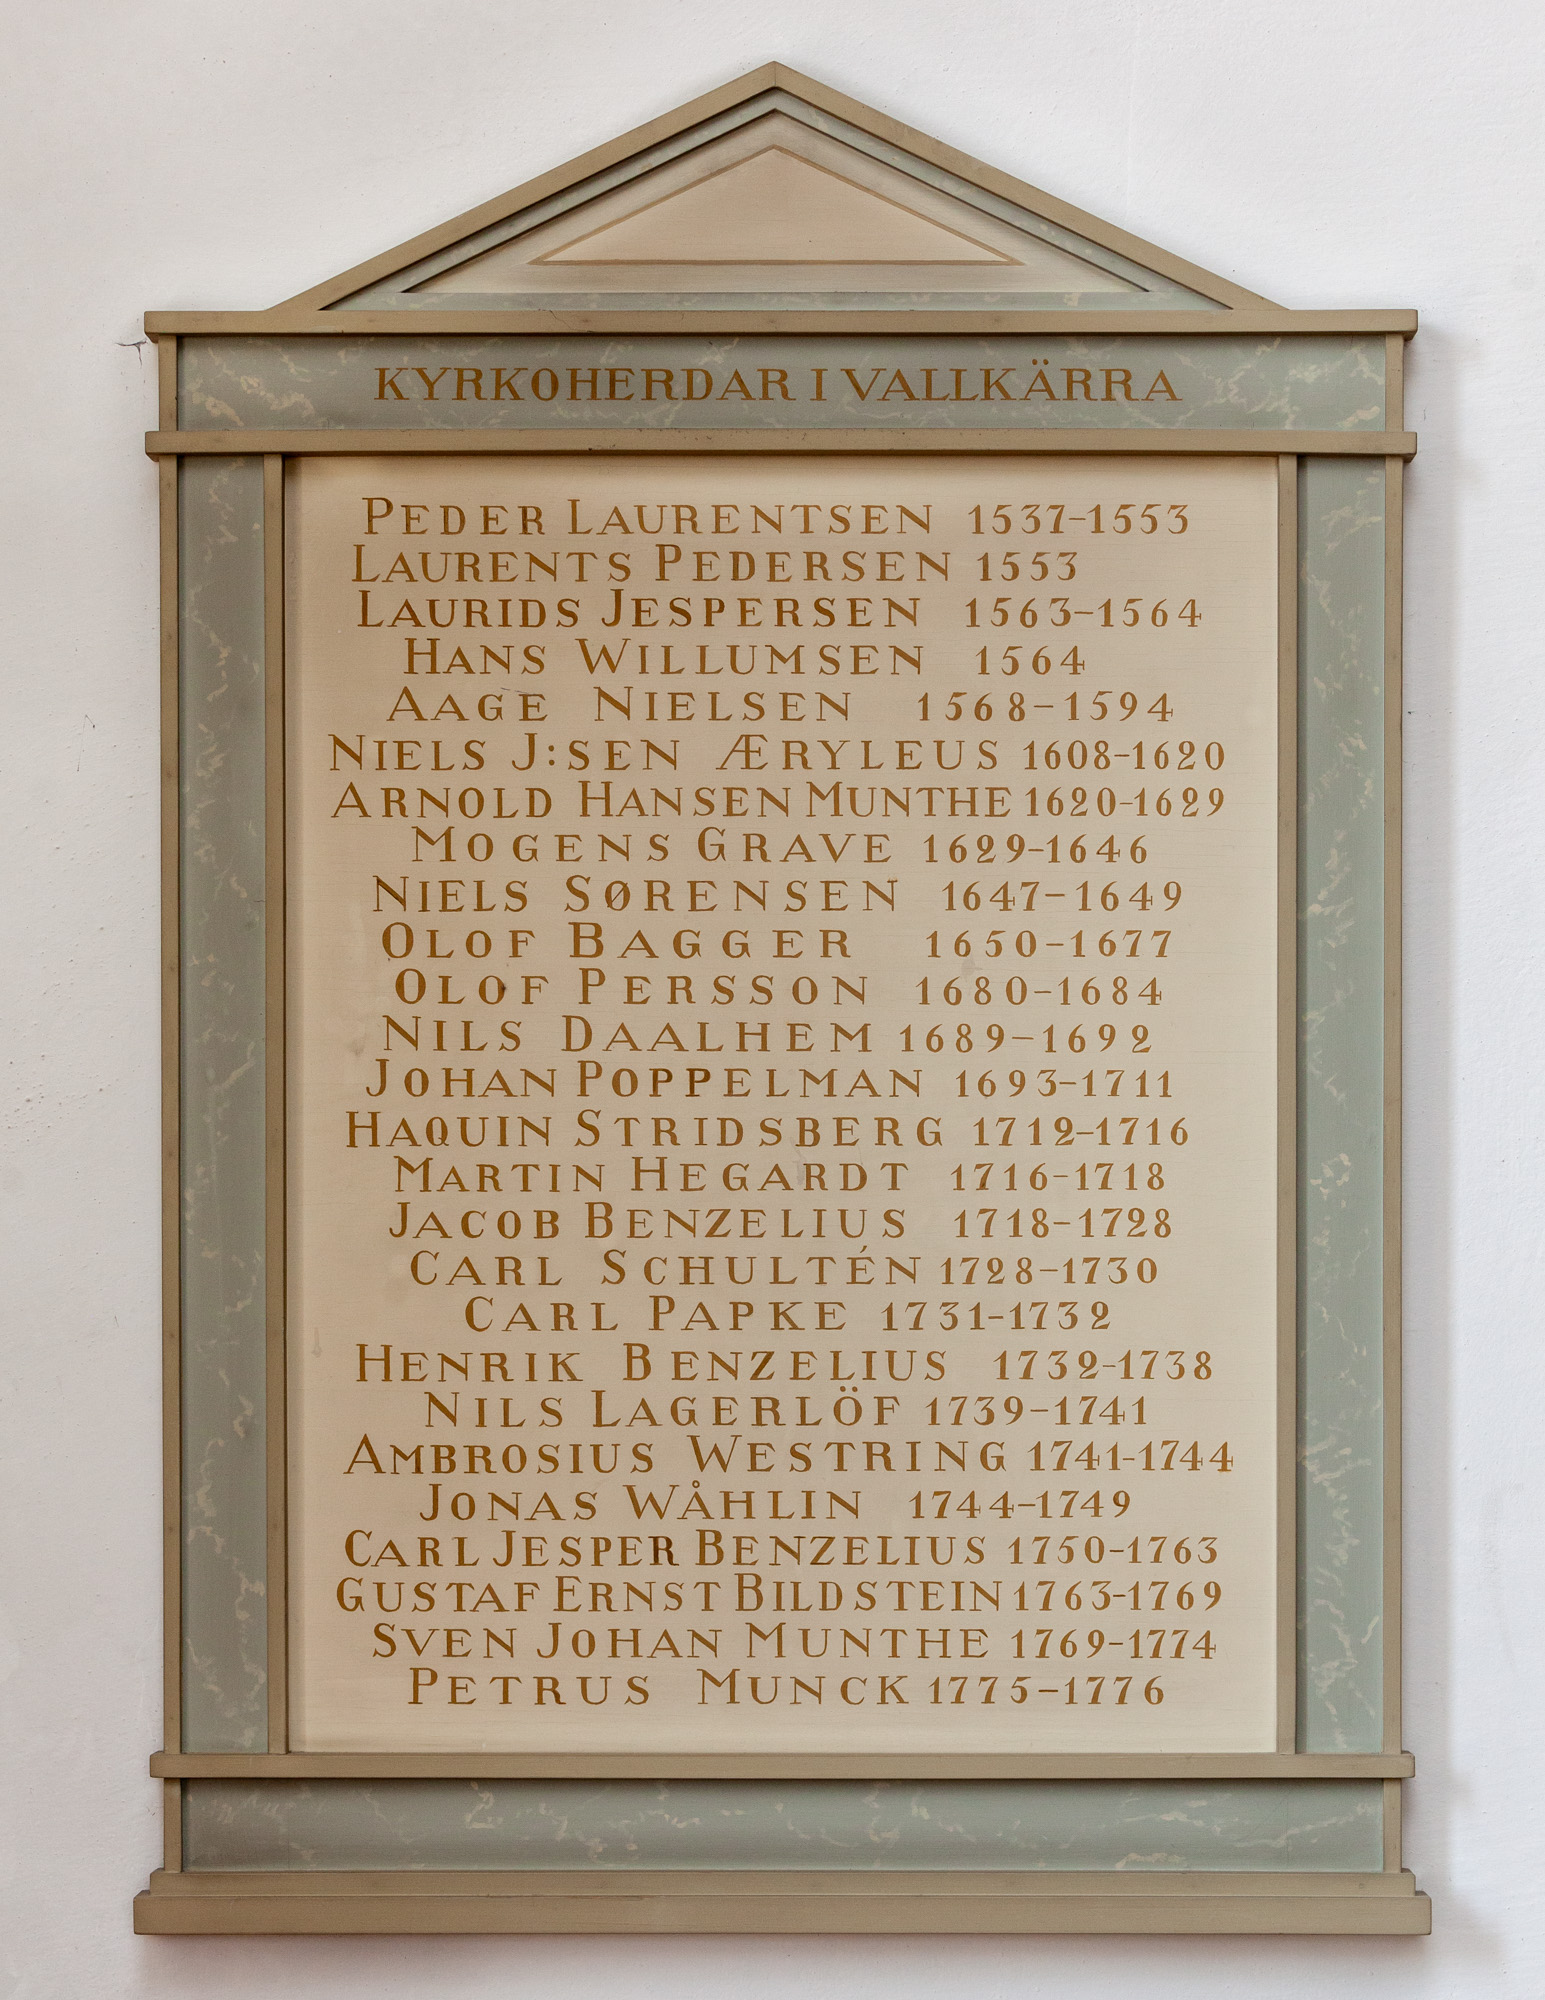 KYRKOHERDAR I VALLKÄRRA
PEDER LAURENTSEN 1537-1553
LAURENTS PEDERSEN 1553
LAURIDS JESPERSEN 1563-1564
HANS WILLUMSEN 1564
AAGE NIELSEN 1568-1594
NIELS J:SEN ÆRYLEUS 1608-1620
ARNOLD HANSEN MUNTHE 1620-1629
MOGENS GRAVE 1629-1646
NIELS SØRENSEN 1647-1649
OLOF BAGGER 1650-1677
OLOF PERSSON 1680-1684
NILS DAALHEM 1689-1692
JOHAN POPPELMAN 1693-1711
HAQUIN STRIDSBERG 1712-1716
MARTIN HEGARDT 1716-1718
JACOB BENZELIUS 1718-1728
CARL SCHULTÉN 1728-1730
CARL PAPKE 1731-1732
HENRIK BENZELIUS 1732-1738
NILS LAGERLÖF 1739-1741
AMBROSIUS WESTRING 1741-1744
JONAS WÅHLIN 1744-1749
CARL JESPER BENZELIUS 1750-1763
GUSTAF ERNST BILDSTEIN 1763-1769
SVEN JOHAN MUNTHE 1769-1774
PETRUS MUNCK 1775-1776